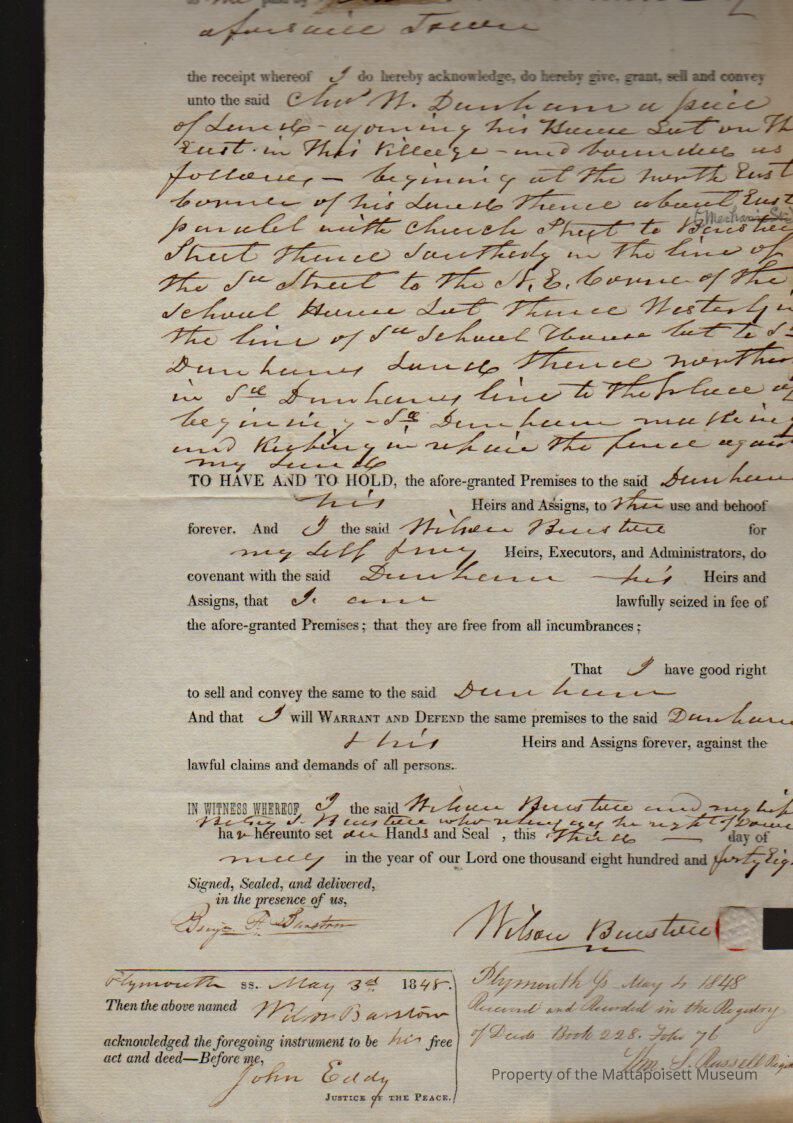 aforesaid Town
the receipt whereof I do hereby acknowledge, do hereby give, grant, sell and convey
unto the said Chs W. Dunham a peice
of Land - ajoining his House Lot on th
East in this Villeege - and bounded as
follows - beginning at the north East
Corner of his Land thence about East
paralel with Church Street to Barstow
(Mechanic St)
Street thence Southerly in the line of
the Sd Street to the N. E. Corner of the
School House Lot thence Westerly in
the line of Sd School House Lot to Sd
Dunhams Land thence northerly
in Sd Dunhams line to the place of
beginning - Sd Dunham making
and Keeping in repair the fence again
my Land
TO HAVE AND TO HOLD, the afore-granted Premises to the said Dunham
his Heirs and Assigns, to their use and behoof
forever. And I the said Wilson Barstow for
my self & my Heirs, Executors, and Administrators, do
covenant with the said Dunham - his Heirs and
Assigns, that I am lawfully seized in fee of
the afore-granted Premises; that they are free from all incumbrances;
That I have good right
to sell and convey the same to the said Dunham
And that I will WARRANT AND DEFEND the same premises to the said Dunham
& his Heirs and Assigns forever, against the
lawful claims and demands of all persons.
IN WITNESS WHEREOF, I the said Wilson Barstow and my wife
Betsey Barstow who relinquishes her right of Dower
have hereunto set our Hands and Seal , this third - day of
may in the year of our Lord one thousand eight hundred and forty Eig
Signed, Sealed, and delivered,
in the presence of us,
Benj. F. Barstow
Wilson Barstow
Plymouth ss. May 3d 1848.
Then the above named Wilson Barstow
acknowledged the foregoing instrument to be his free
act and deed—Before me,
John Eddy
JUSTICE OF THE PEACE.
Plymouth Ss - May 4 1848
Received and Recorded in the Registry
of Deeds Book 228. Folio 76
Wm. S. Russell Regis
Property of the Mattapoisett Museum